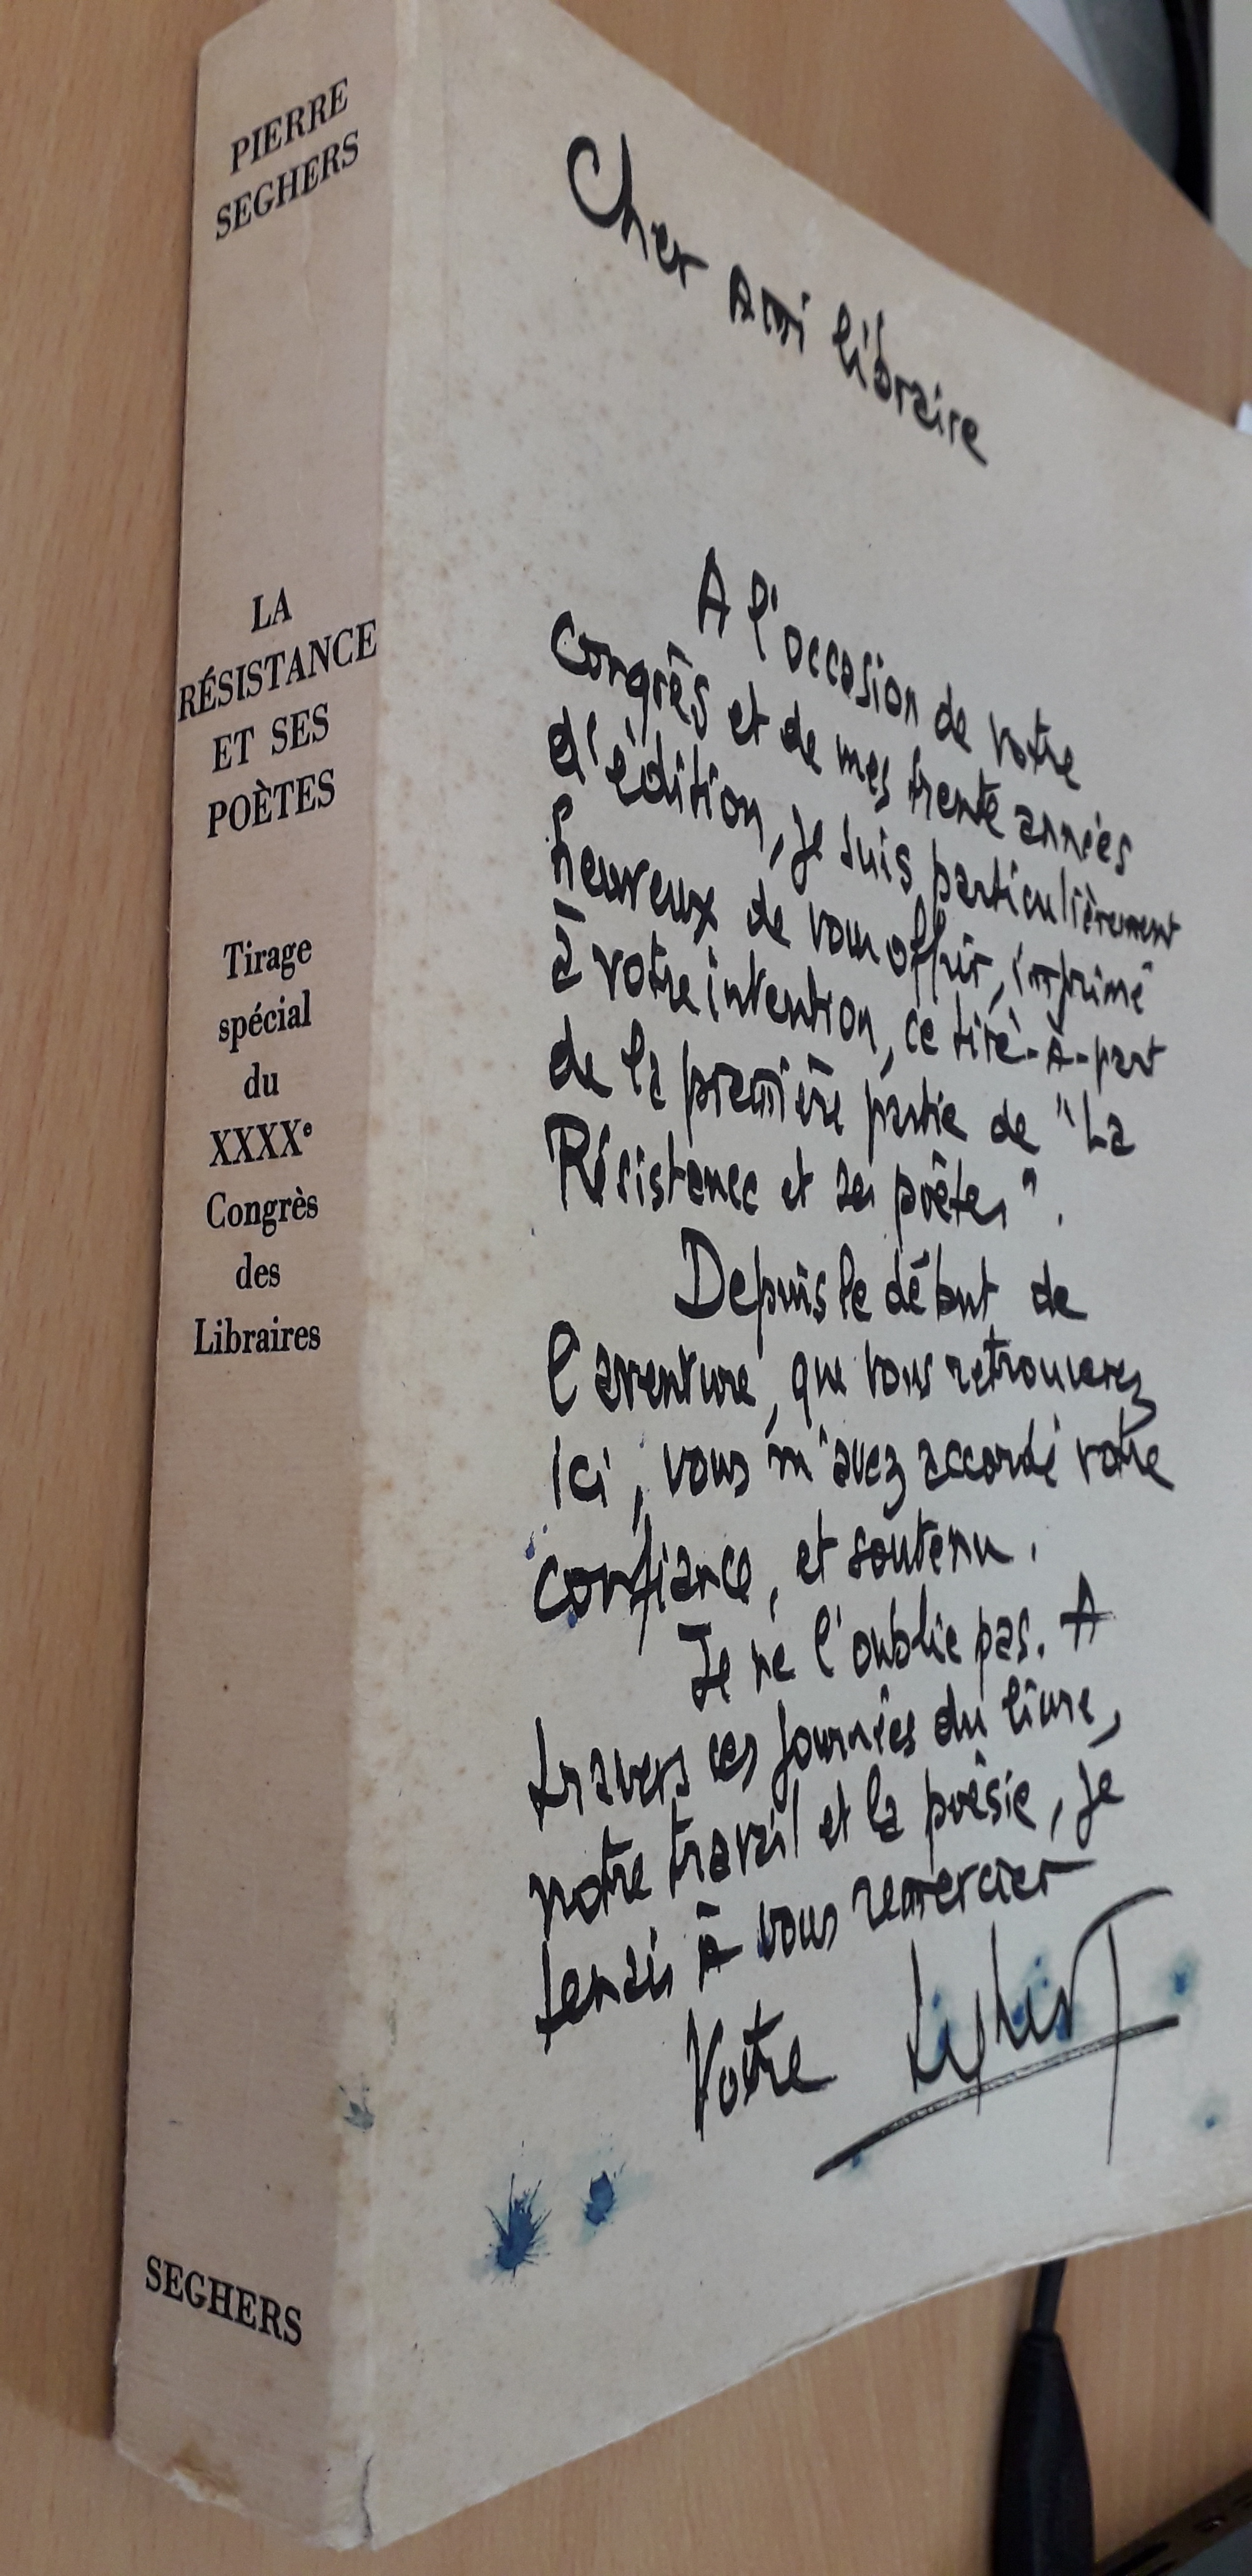 PIERRE
SEGHERS
LA
RÉSISTANCE
ET SES
POÈTES
Tirage
spécial
du
XXXXe
Congrès
des
Libraires
SEGHERS
Cher Ami libraire
A l'occasion de votre
Congrès et de mes trente années
d'édition, je suis particulièrement
heureux de vous offrir, imprimé
à votre intention, ce tiré-à-part
de la première partie de "La
Résistance et ses poètes".
Depuis le début de
l'aventure, que vous retrouverez
ici, vous m'avez accordé votre
confiance, et soutenu.
Je ne l'oublie pas. A
travers ces journées du livre,
notre travail et la poésie, je
tenais à vous remercier
Votre Seghers